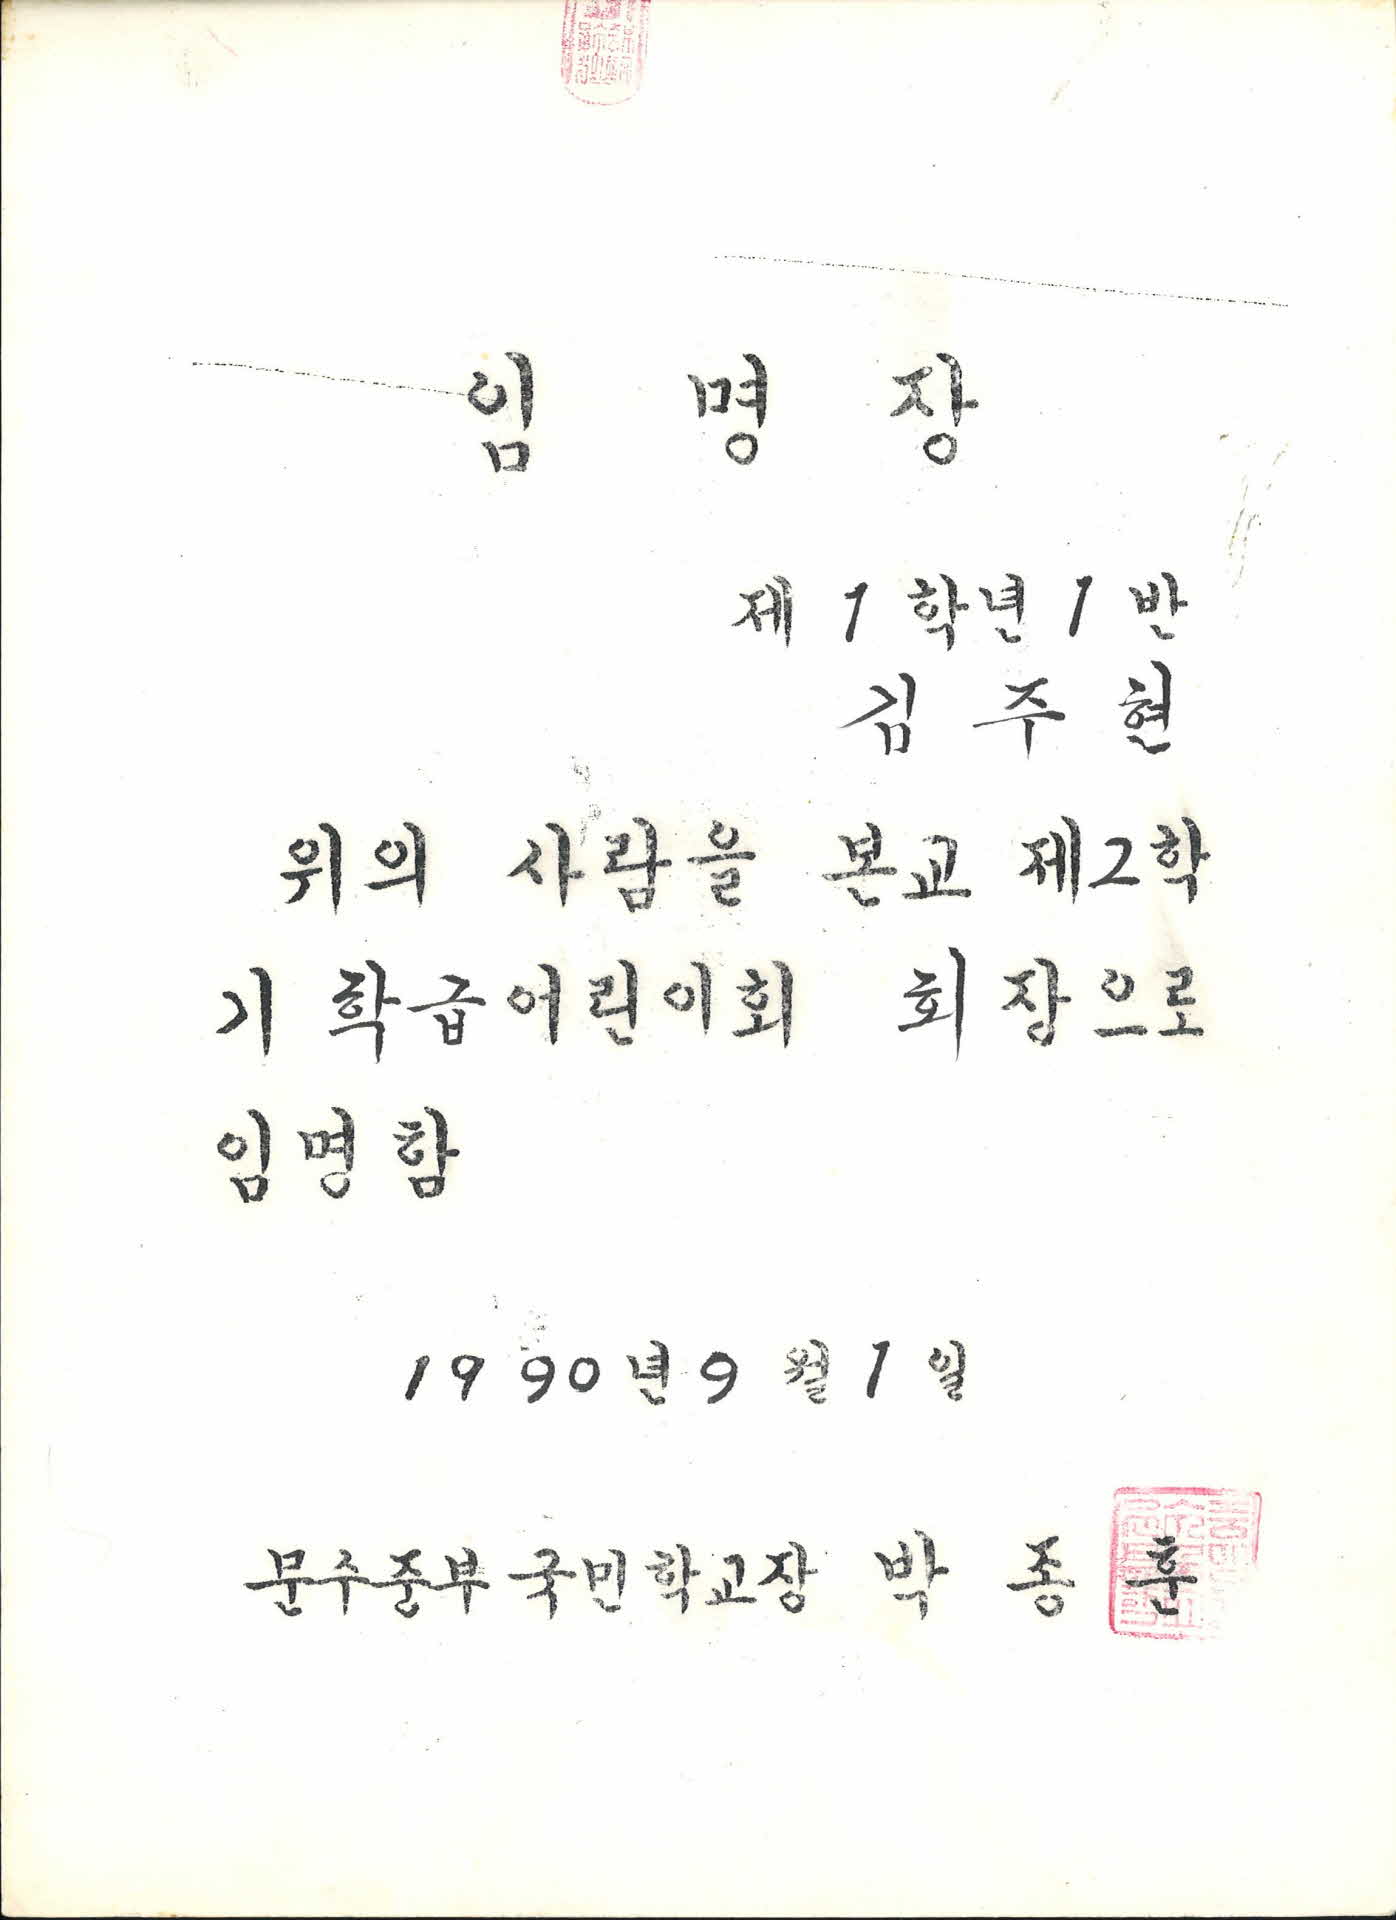 임 명 장
제 1 학년 1 반
김 주 현
위의 사람을 본교 제2학
기 학급어린이회 회장으로
임명함
1990년 9월 1일
문수중부 국민학교장 박 종 훈